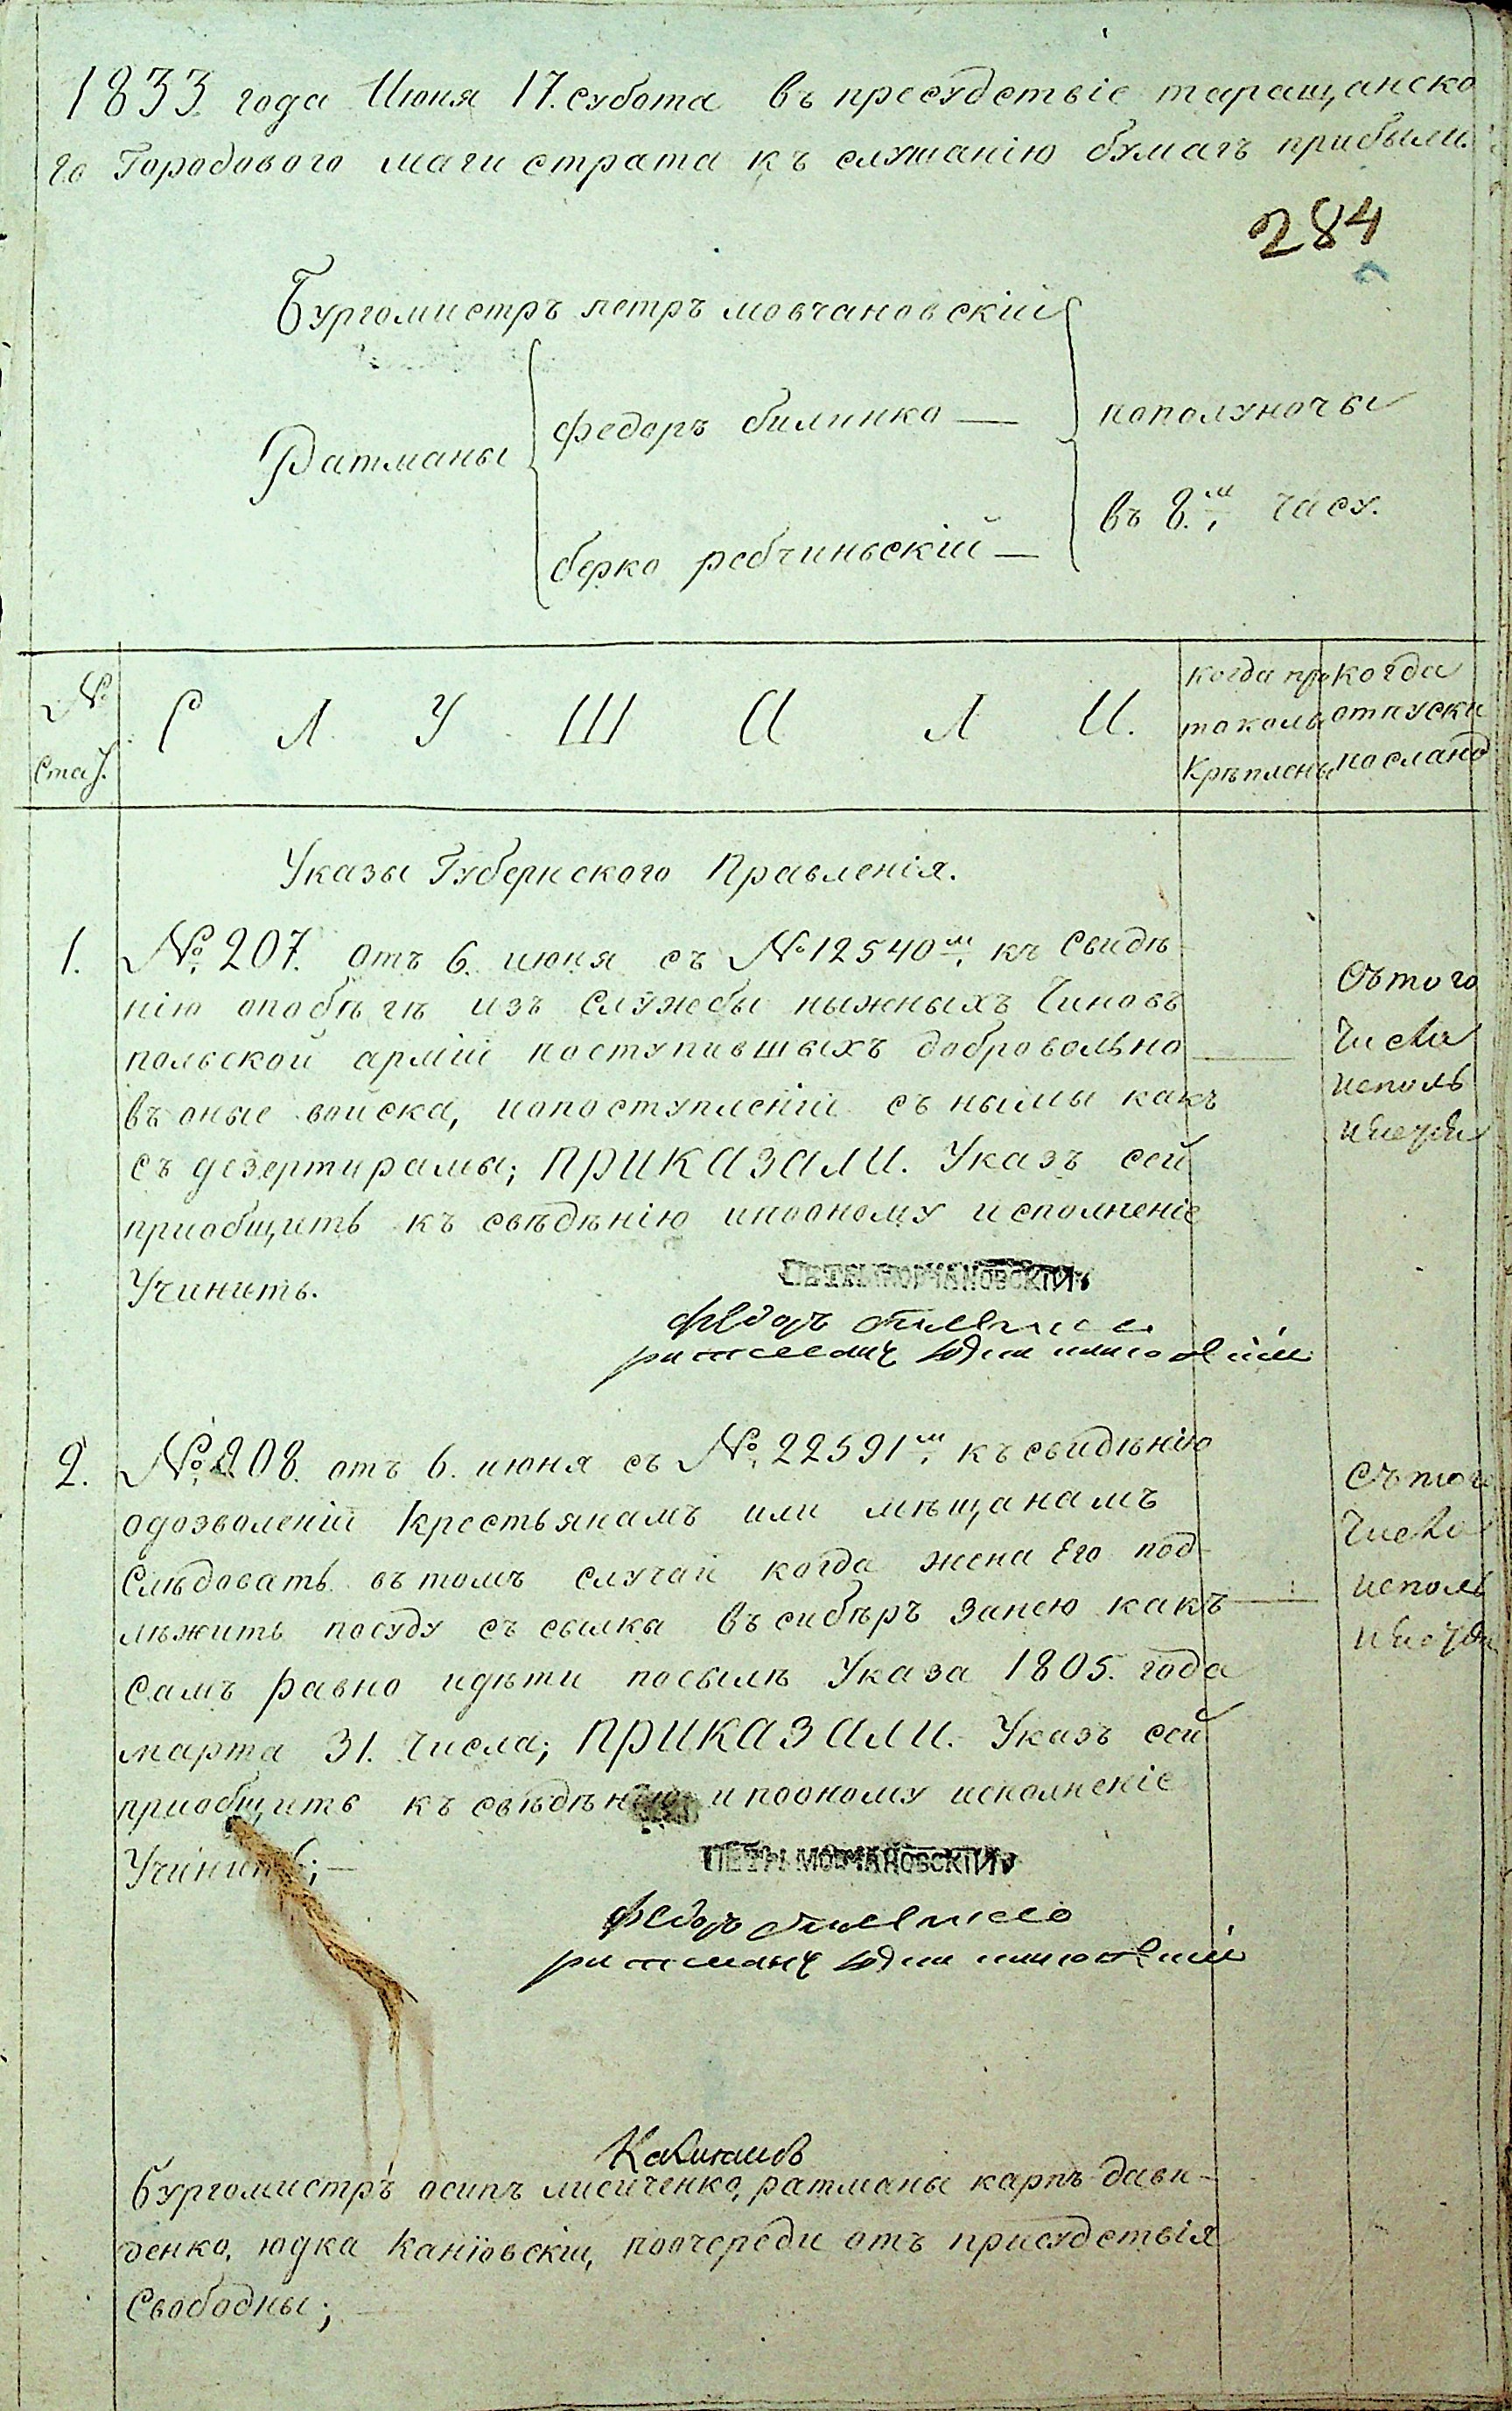 1833 года Июня 17. субота въ пресудствіе таращанско
го Городового магистрата къ слушанію бумагъ прибыли.
284
Бургомистръ петръ мовчановскій
Ратманы
федоръ билинко —
берко ребчиньскій —
пополуночы
въ 8.м часу.
№
Стат.
СЛУШАЛИ.
когда про
токолы
Крѣплены
когда
отпуски
посланы
Указы Губернского Правленія.
1. № 207. отъ 6. июня съ № 12540м къ Свидѣ
нію опобѣгѣ изъ Службы ныжныхъ Чиновъ
польской арміи поступившыхъ добровольно —
въ оные войска, ипоступленіи съ нымы какъ
съ дезертирамы; ПРИКАЗАЛИ. Указъ сей
приобщить къ свѣдѣнію ипооному исполненіе
Учинить.
Сътого
Числа
исполь
ПЕТРЪ МОВЧАНОВСКІЙ
федоръ
2. № 208. отъ 6. июня съ № 22591м къ свидѣнію
одозволеніи Крестьянамъ или мѣщанамъ
Слѣдовать въ томъ случаи когда жена Его под
лѣжить посуду съсылка въ сибѣръ Занею какъ —
Самъ равно идѣти посылѣ Указа 1805. года
марта 31. Числа; ПРИКАЗАЛИ. Указъ сей
приобщить къ свѣдѣнію ипооному исполненіе
Учинить; —
Сътого
Числа
исполь
ПЕТРЪ МОВЧАНОВСКІЙ
федоръ
бургомистръ осипъ лисиченко, ратманы карпъ давы-
денко, юдка Каніовскіи, поочереди отъ присудствія
Свободны; —